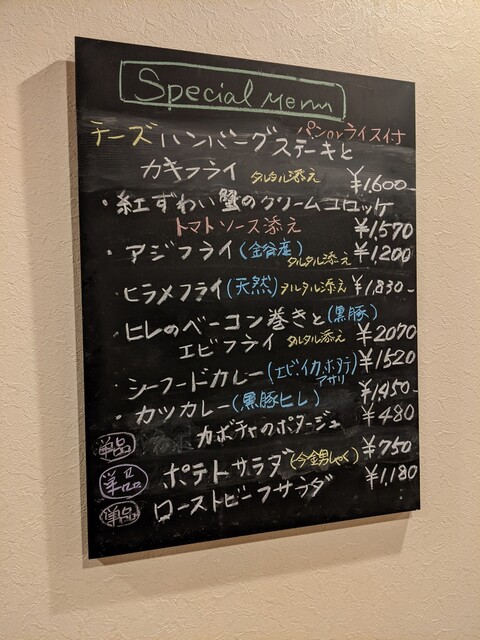 Special Menu
パンorライス付
チーズハンバーグステーキと
カキフライ タルタル添え ¥1,600-
・紅ずわい蟹のクリームコロッケ
トマトソース添え ¥1,570
・アジフライ(金谷産) タルタル添え ¥1200
・ヒラメフライ(天然) タルタル添え ¥1,830-
・ヒレのベーコン巻きと(黒豚)
エビフライ タルタル添え ¥2070
・シーフードカレー(エビ,イカ,ホタテ ¥1520
アサリ)
・カツカレー(黒豚ヒレ) ¥1,450-
単品 カボチャのポタージュ ¥480
単品 ポテトサラダ(今金男しゃく) ¥750
単品 ローストビーフサラダ ¥1,180